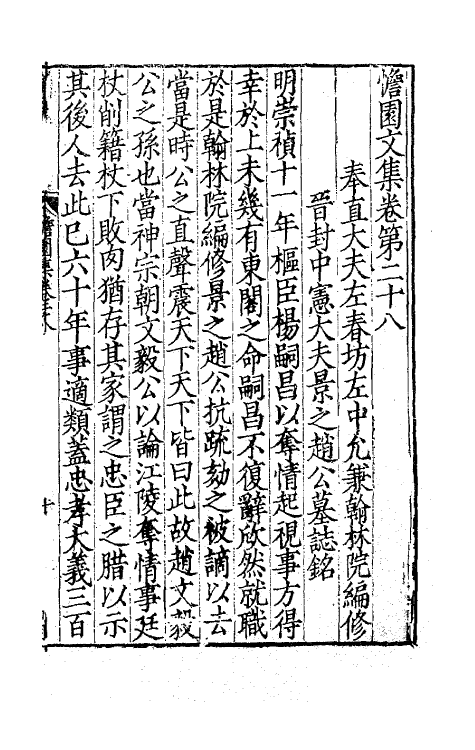 憺園文集卷第二十八
奉直大夫左春坊左中允兼翰林院編修
晉封中憲大夫景之趙公墓誌銘
明崇禎十一年樞臣楊嗣昌以奪情起視事方得
幸於上未幾有東閣之命嗣昌不復辭欣然就職
於是翰林院編修景之趙公抗疏劾之被謫以去
當是時公之直聲震天下天下皆曰此故趙文毅
公之孫也當神宗朝文毅公以論江陵奪情事廷
杖削籍杖下敗肉猶存其家謂之忠臣之腊以示
其後人去此巳六十年事適類蓋忠孝大義三百
憺園集卷